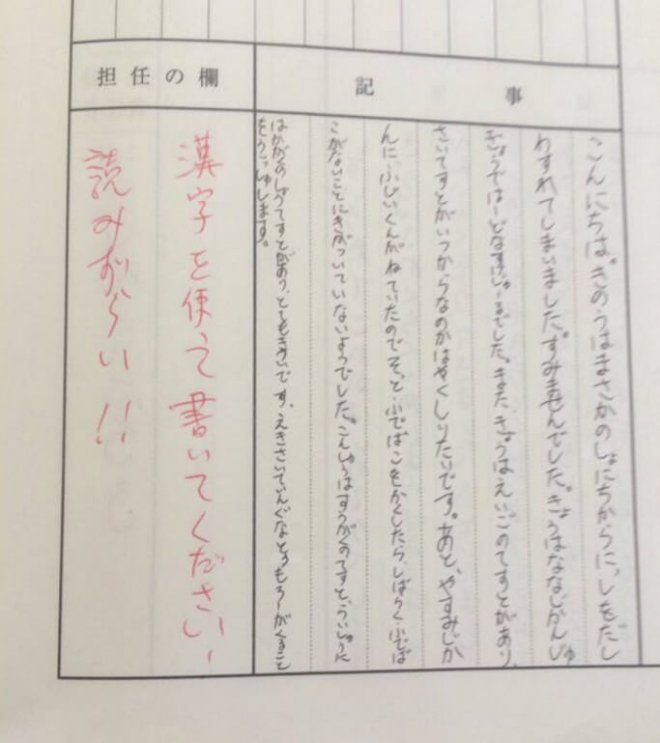 記事
こんにちは。きのうはまさかのしょにちからにっしをだし
わすれてしまいました。すみませんでした。きょうはななじかんじゅ
ぎょうではーどなすけじゅーるでした。また、きょうはえいごのてすとがあり、
さいてすとがいつからなのかはやくしりたいです。あと、やすみじか
んに、ふじいくんがねていたのでそっとふでばこをかくしたら、しばらくふでば
こがないことにきがついていないようでした。こんしゅうはすうがくのてすと、らいしゅうに
はかがくのしょうてすとがあり、とてもきついです。えきさいてぃんぐなとぅもろーがくること
をうぃっしゅします。
担任の欄
漢字を使って書いてください、
読みずらい!!